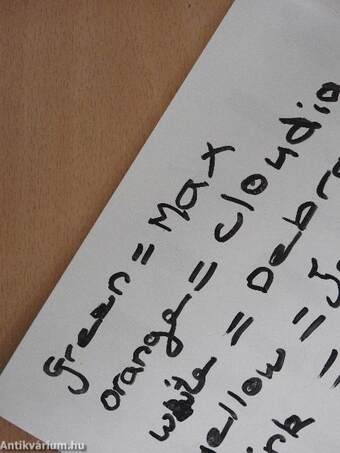 green = Max
orange = Cloudia
white = Debra
yellow =
=
Antikvárium.hu